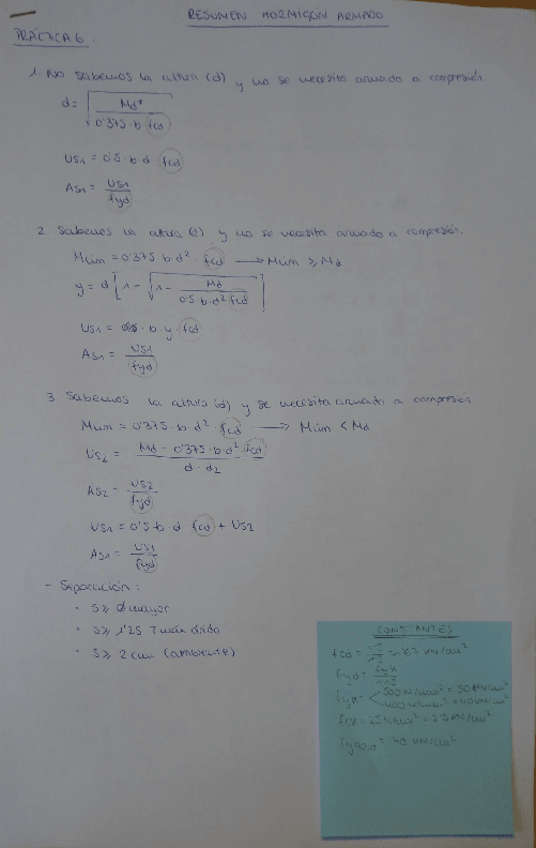 RESUMEN HORMIGÓN ARMADO
PRÁCTICA 6
1. No sabemos la altura (d) y no se necesita armado a compresión.
d = √(Md* / 0'375·b·fcd)
Us1 = 0'5·b·d·fcd
As1 = Us1 / fyd
2 Sabemos la altura (d) y no se necesita armado a compresión.
Mlim = 0'375·b·d² fcd → Mlim ≥ Md
y = d [1 - √(1 - Md / 0'5·b·d² fcd)]
Us1 = b·y·fcd
As1 = Us1 / fyd
3. Sabemos la altura (d) y se necesita armado a compresión.
Mlim = 0'375·b·d²·fcd → Mlim < Md
Us2 = Md - 0'375·b·d²·fcd / d-d2
As2 = Us2 / fyd
Us1 = 0'5·b·d fcd + Us2
As1 = Us1 / fyd
- Separación:
· S ≥ Ø mayor
· S ≥ 1'25 T máx árido
· S ≥ 2 cm (ambiente)
CONSTANTES
fcd = = 1'67 kN/cm²
fyd = fyk
fyk = 500 N/mm² = 50 kN/cm²
400 N/mm² = 40 kN/cm²
fck = 25 N/mm² = 2'5 kN/cm²
= 40 kN/cm²